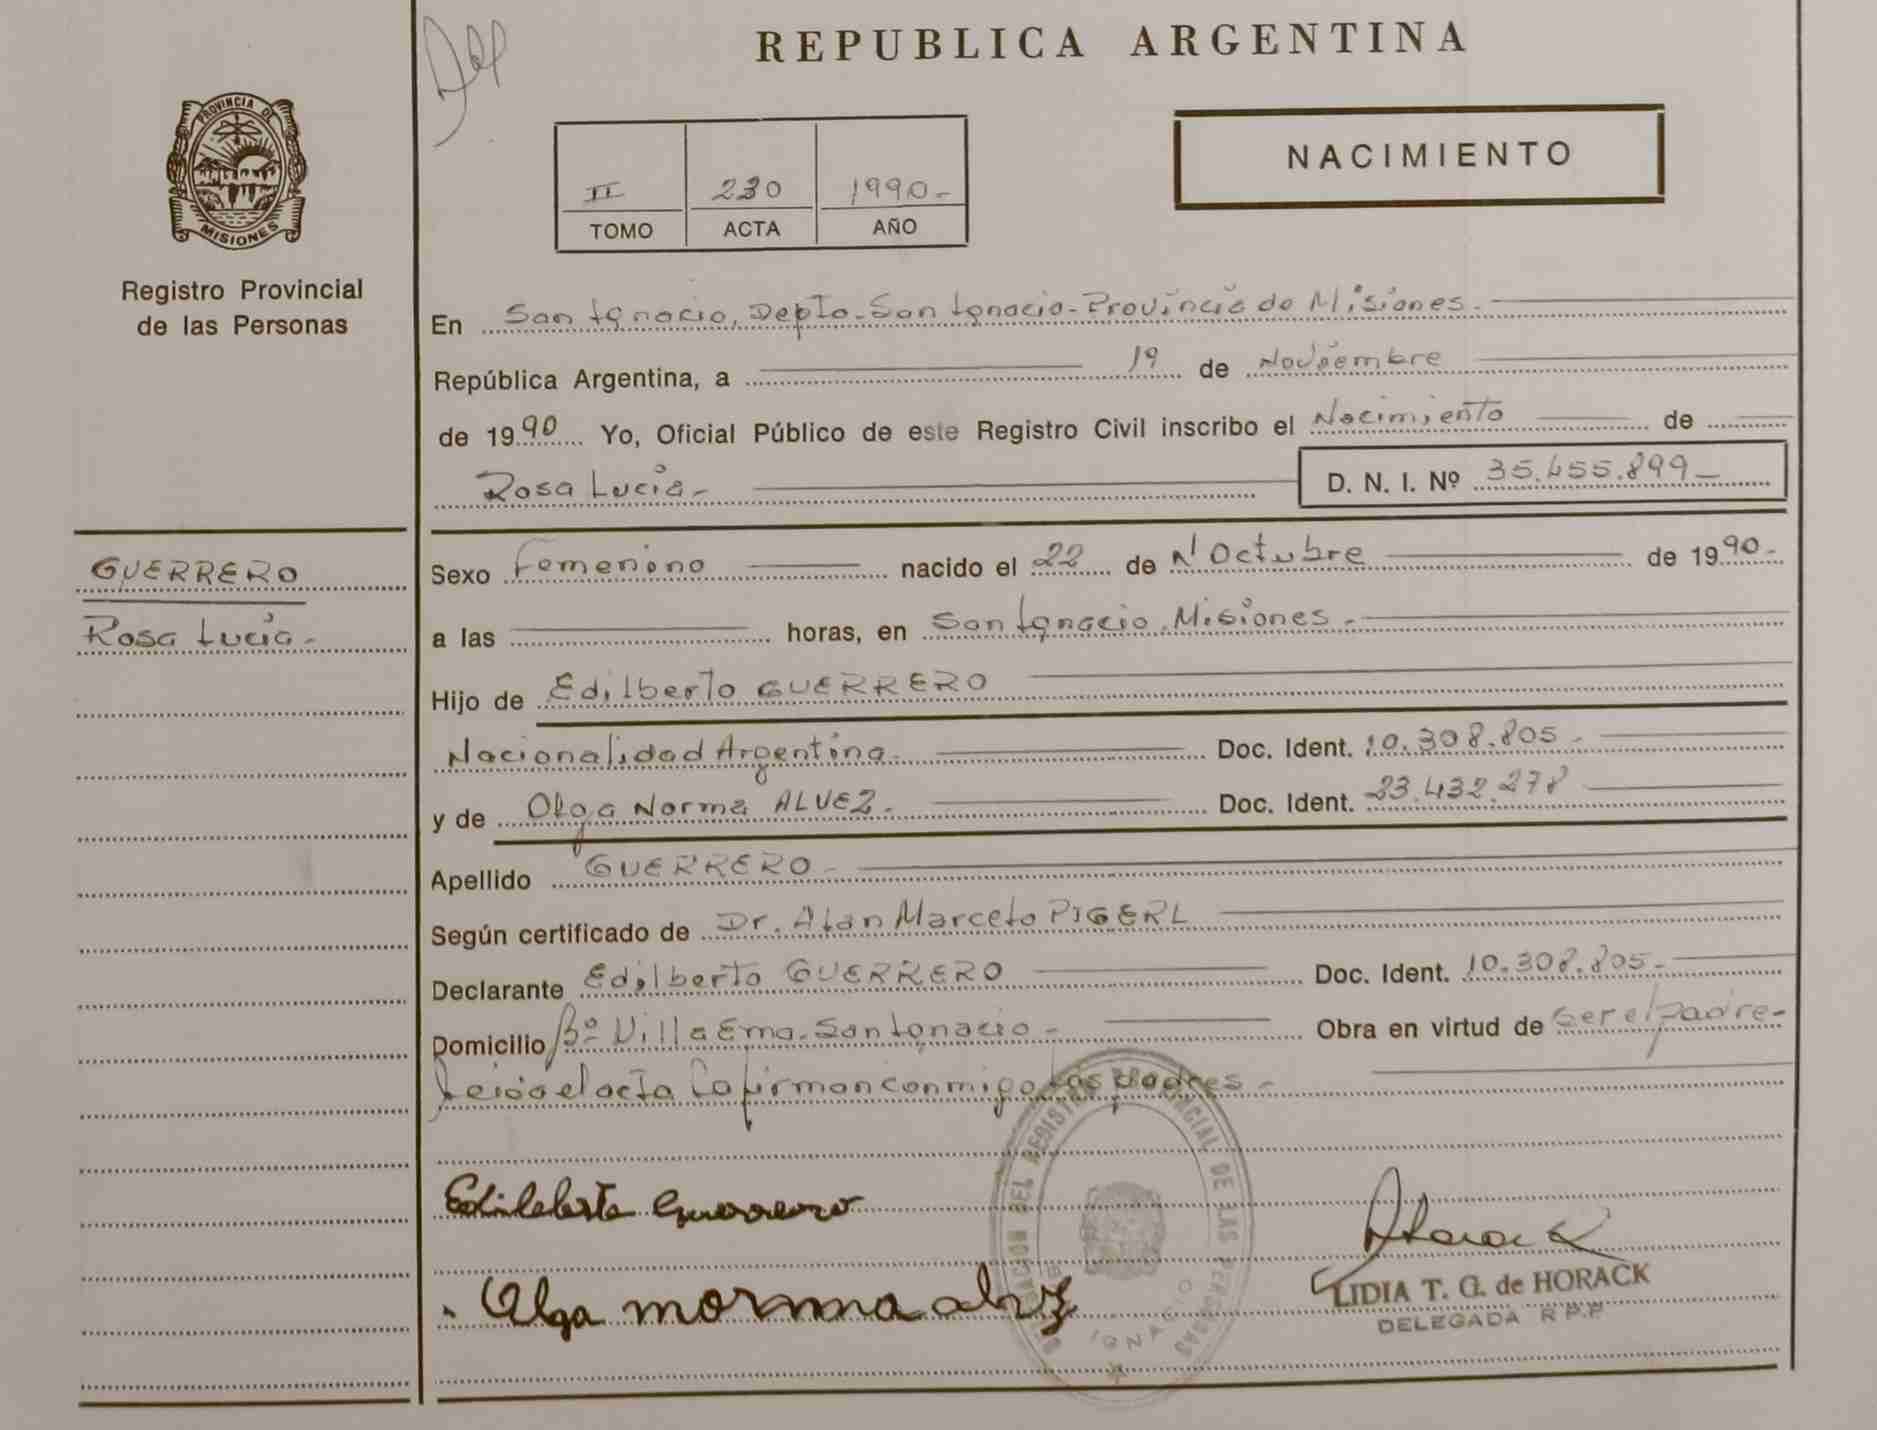 REPUBLICA ARGENTINA
PROVINCIA DE
MISIONES
Registro Provincial
de las Personas
II 230 1990-
TOMO ACTA AÑO
NACIMIENTO
En San Ignacio, Depto. San Ignacio-Provincia de Misiones.
República Argentina, a 19 de Noviembre
de 1990 Yo, Oficial Público de este Registro Civil inscribo el Nacimiento de
Rosa Lucia- D. N. I. Nº 35.455.899-
GUERRERO
Rosa Lucia-
Sexo Femenino nacido el 22 de Octubre de 1990-
a las horas, en San Ignacio, Misiones.-
Hijo de Edilberto GUERRERO
Nacionalidad Argentina. Doc. Ident. 10.308.805-
y de Olga Norma ALVEZ. Doc. Ident. 23.432.278
Apellido GUERRERO-
Según certificado de Dr. Alan Marcelo PIGERL
Declarante Edilberto GUERRERO Doc. Ident. 10.308.805-
Domicilio Bº Villa Ema. San Ignacio- Obra en virtud de ser el padre-
Leida el acta la firman conmigo los padres-
Edilberto Guerrero
Olga norma alvez
Horack
LIDIA T. G. de HORACK
DELEGADA R.P.P.
DEL REGISTRO PROVINCIAL DE LAS PERSONAS
IGNACIO